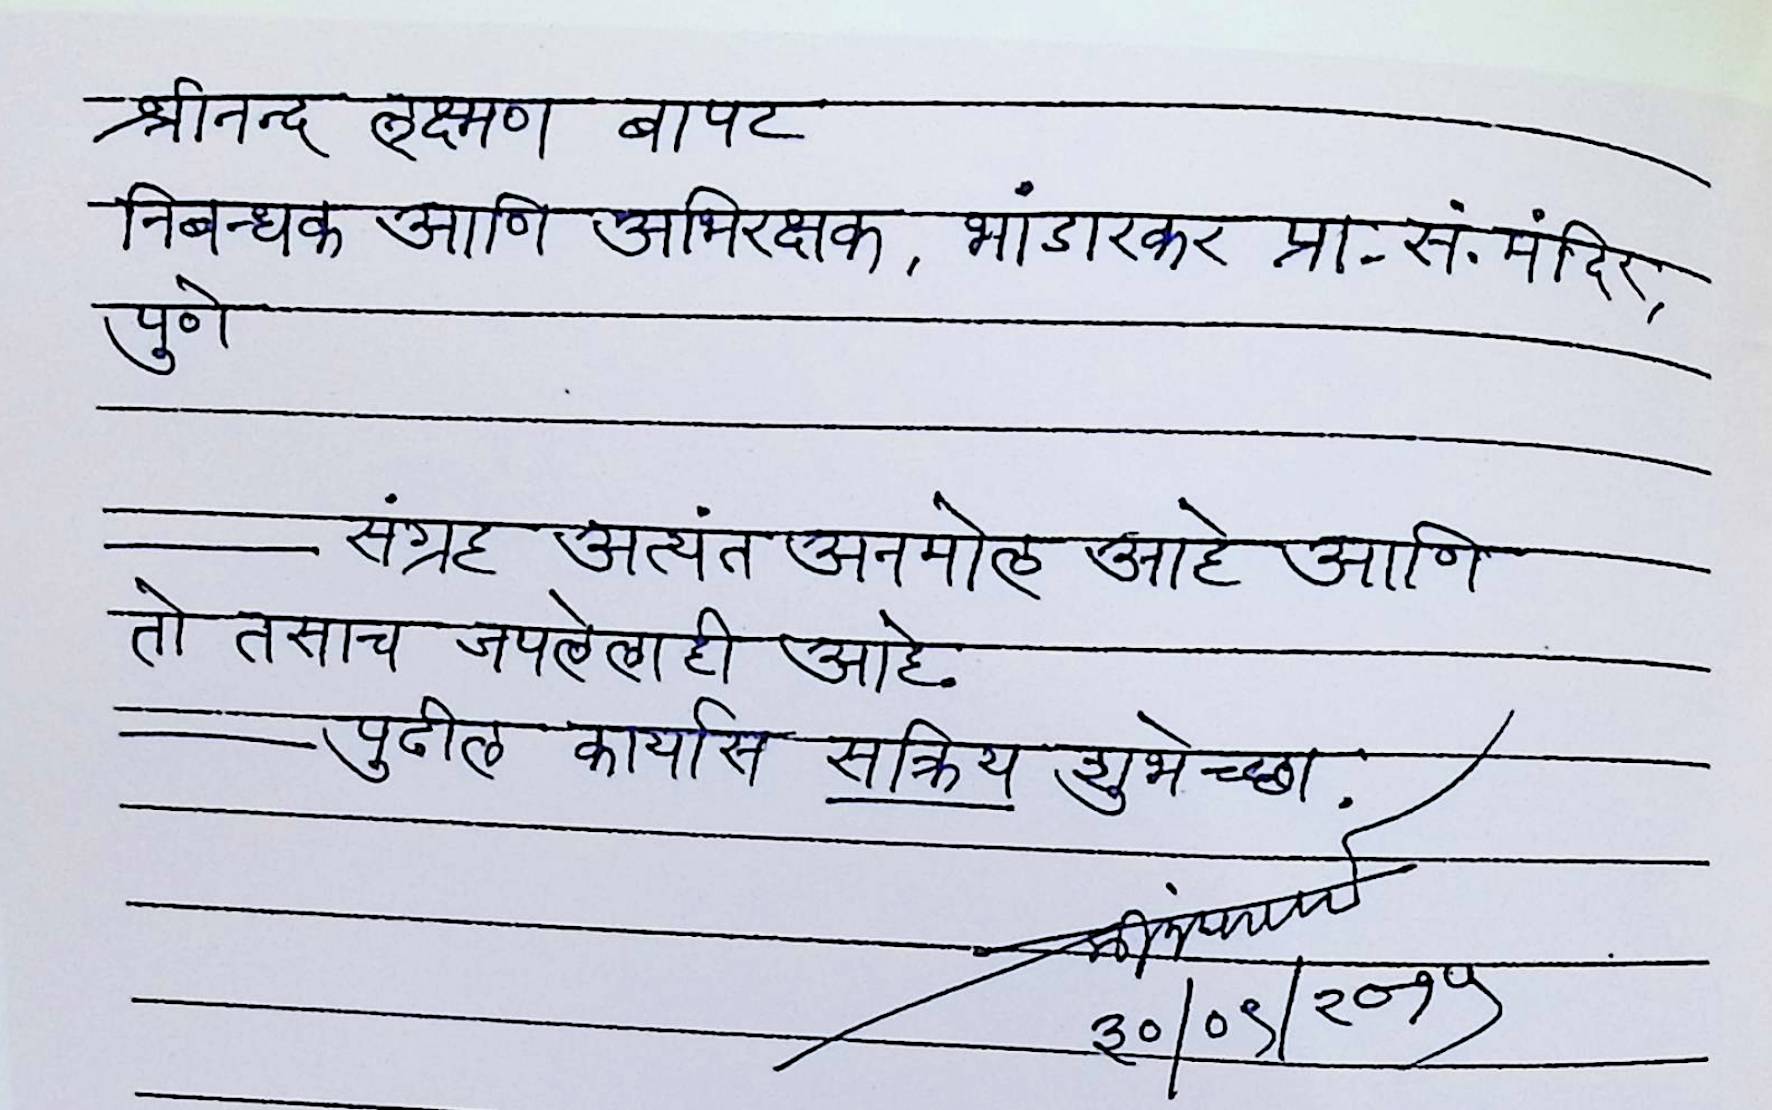 श्रीनन्द लक्ष्मण बापट
निबन्धक आणि अभिरक्षक, भांडारकर प्रा. सं. मंदिर,
पुणे
संग्रह अत्यंत अनमोल आहे आणि
तो तसाच जपलेलाही आहे.
पुढील कार्यास सक्रिय शुभेच्छा.
३०/०९/२०१५